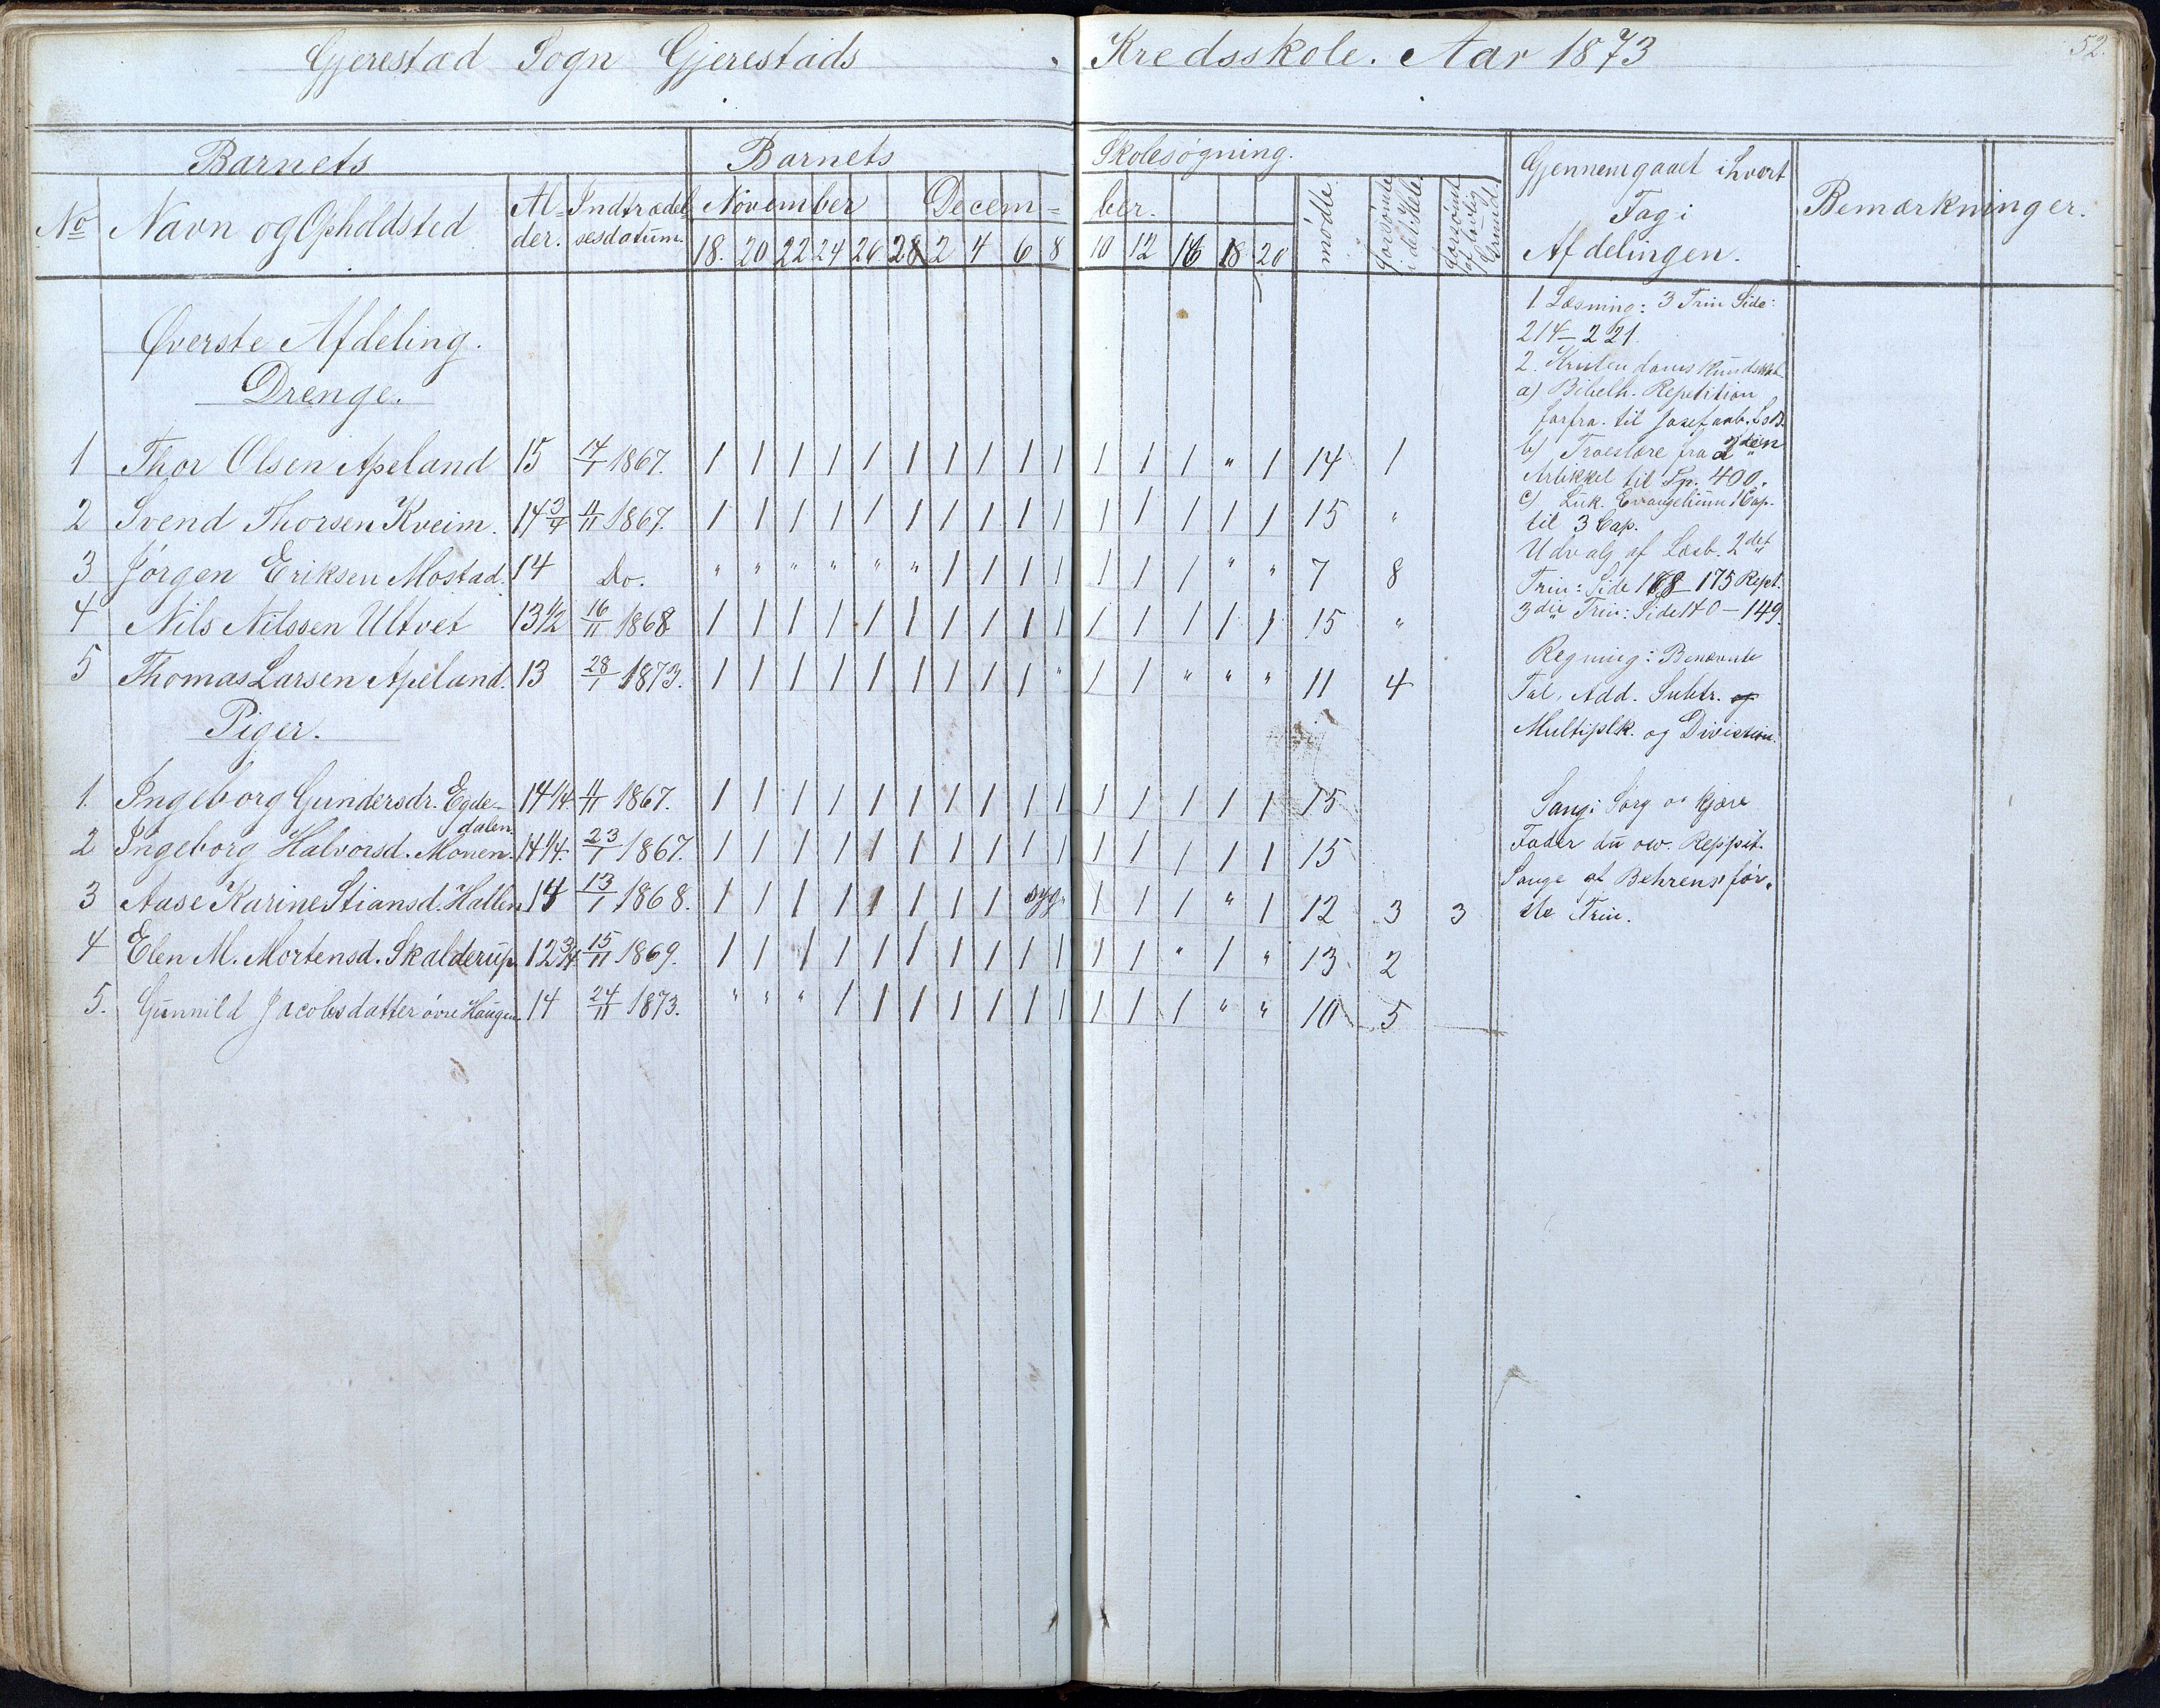 Gjerestad Sogn Gjerestads Kredsskole. Aar 1873
52.
Barnets Barnets Skolesøgning. Gjennemgaaet i hvert Fag i Afdelingen. Bemærkninger.
No Navn og Opholdsted Al-der. Indtrædelsesdatum. November Decem-ber. mødte forsømte i det Hele forsømt af lovlig Grund.
18. 20 22 24 26 28 2 4 6 8 10 12 16 18 20
Øverste Afdeling.
Drenge.
1 Thor Olsen Apeland 15 14/1 1867. 1 1 1 1 1 1 1 1 1 1 1 1 1 " 1 14 1
2 Svend Thorsen Kveim. 14 3/4 11/11 1867. 1 1 1 1 1 1 1 1 1 1 1 1 1 1 1 15 "
3 Jørgen Eriksen Mostad. 14 Do. " " " " " " 1 1 1 1 1 1 1 " " 7 8
4 Nils Nilssen Ultvet 13 1/2 16/11 1868 1 1 1 1 1 1 1 1 1 1 1 1 1 1 1 15 "
5 Thomas Larsen Apeland. 13 28/1 1873. 1 1 1 1 1 1 1 1 1 " 1 1 " " " 11 4
Piger.
1. Ingeborg Gundersdr. Egde-dalen. 14 1/4 11/11 1867. 1 1 1 1 1 1 1 1 1 1 1 1 1 1 1 15
2 Ingeborg Halvorsd. Monen. 14 1/4. 23/1 1867. 1 1 1 1 1 1 1 1 1 1 1 1 1 1 1 15
3 Aase Karine Stiansd. Hallen 14 13/1 1868. 1 1 1 1 1 1 1 1 syg. 1 1 1 " 1 12 3 3
4 Elen M. Mortensd. Skalderup 12 3/4 15/11 1869. 1 1 1 1 1 1 1 1 1 1 1 1 " 1 " 13 2
5. Gunnild Jacobsdatter øvre Haugen 14 24/11 1873. " " " 1 1 1 1 1 1 1 1 1 1 " " 10 5
1 Læsning: 3 Trin Side:
214-221.
2. Kristendomskundskab
a) Bibelh. Repetition
forfra til Josef
b) Troeslære fra 2den
Artikkel til Sp. 400.
c) Luk. Evangelium 1 Cap.
til 3 Cap.
Udvalg af Læsb. 2det
Trin: Side 168-175 Rept.
3die Trin: Side 140-149.
Regning: Benævnte
Tal, Add. Subtr. og
Multiplk. og Division.
Sang: Sørg o kjære
Fader du osv. Reppit.
Sange af Behrens før-
ste Trin.